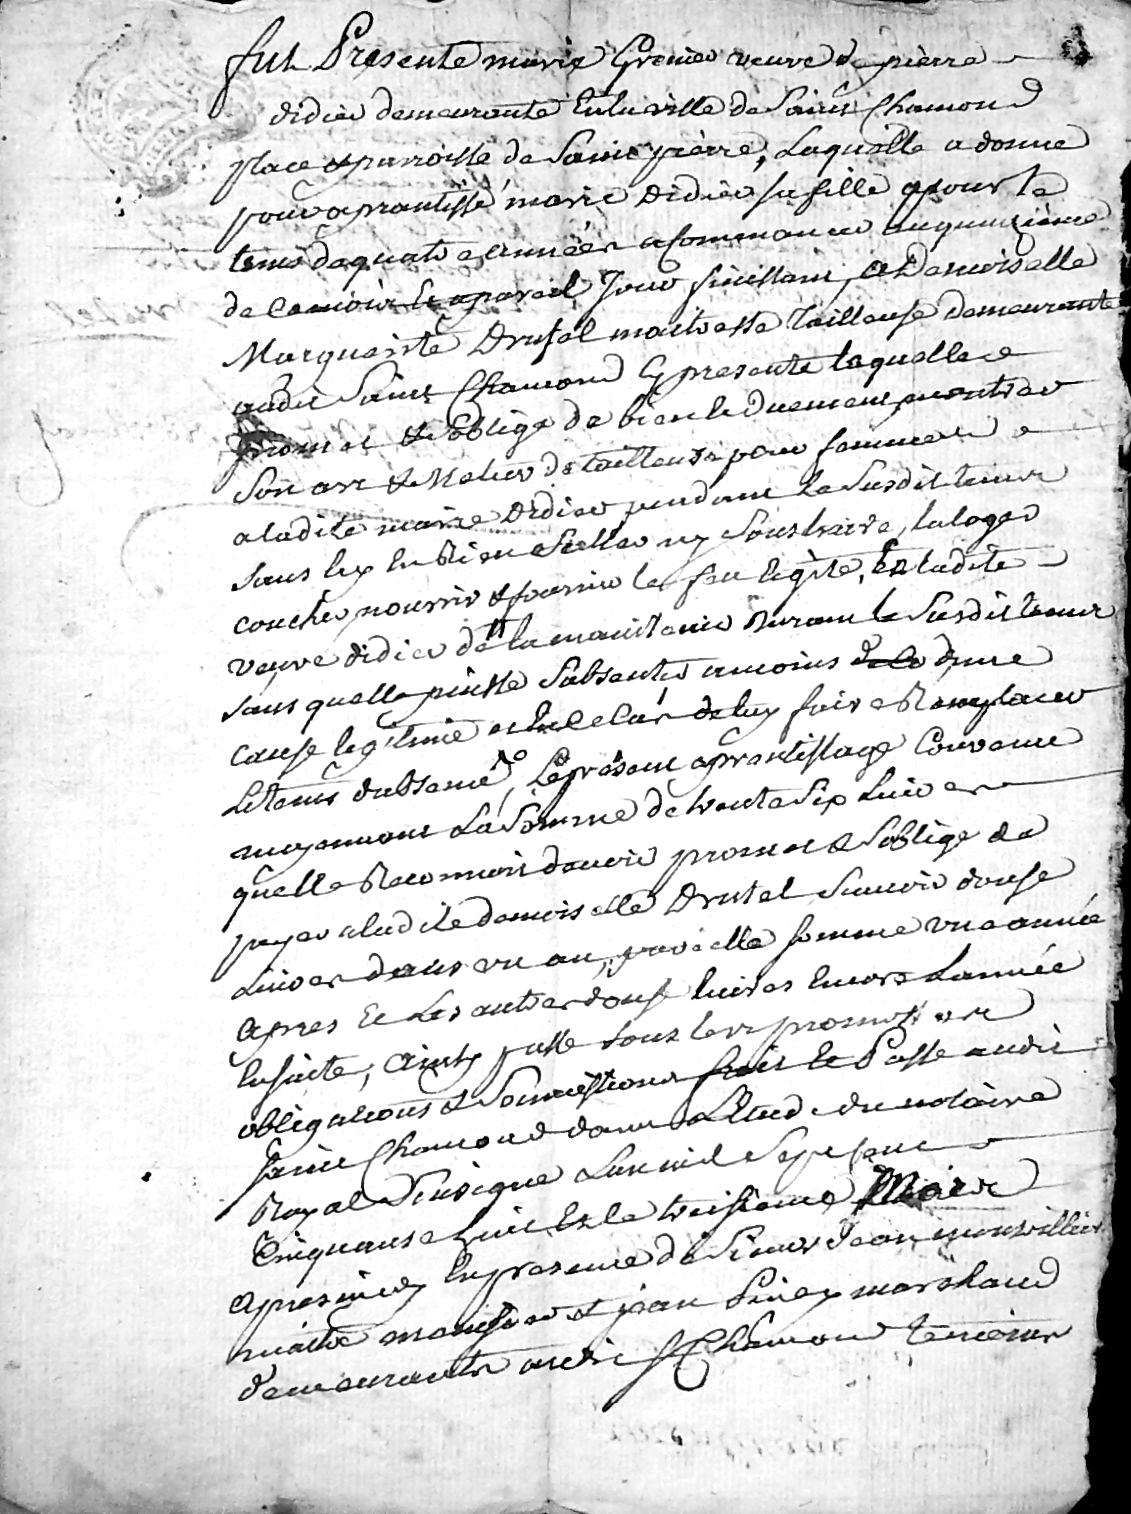 fut Presente marie Grenier veuve de pierre
didier demeurante En la ville de Saint Chamond
place & parroisse de Saint pierre, Laquelle a donne
pour aprantisse marie didier sa fille & pour le
tems de quatre années a commancer au quinzieme
de ce mois le a pareil Jour finissant, a Demoiselle
Marguerite Drutel maitresse Tailleuse demeurante
audit Saint Chamond Cy presente laquelle
promet & soblige de bien & duement montrer
Son art & Metier de tailleuse pour femme
a ladite marie didier pendant le Susdit tems
sans luy en Rien Celler ny Soustraire, la loger
coucher nourrir & fournir le feu le gite, Et ladite
veuve didier de la maintenir durant le Susdit tems
sans quelle puisse Sabsenter amoins dune
cause legitime et audit cas de luy faire Remplacer
le tems dabsence, Le present aprentissage Convenu
moyennant La Somme de trente Six Livres
quelle Reconnoit devoir promet & soblige de
payer a ladite demoiselle Drutel Scavoir douse
Livres dans un an, pareille somme une année
apres Et Les autres douse livres encore Lannée
Ensuite, Ainsy passe sous leurs promesses
obligations & Soumissions fait & Passe audit
Saint Chamond dans L'Etude du notaire
Royal Soussigne Lan mil Sept cent
Cinquante huit & le treisieme Mars
apres midy En presence de Sieur Jean
maitre & jean marchand
demeurants audit St Chamond temoins